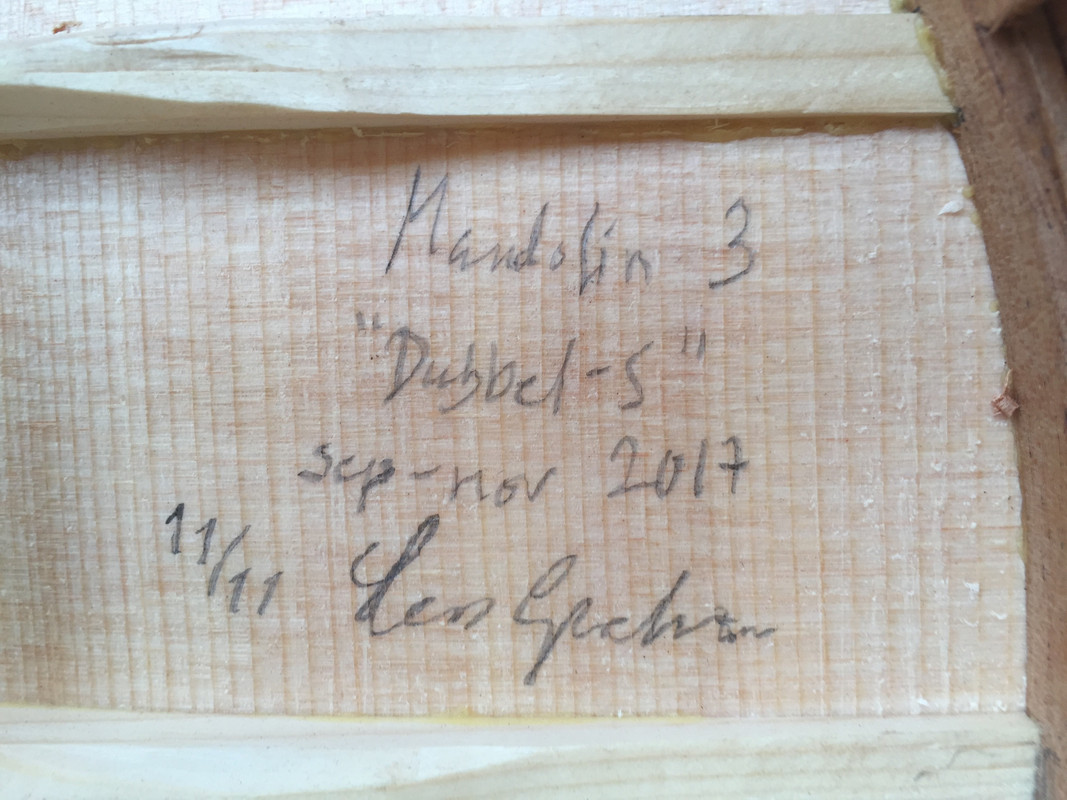 Mandolin 3
"Dubbel-S"
sep-nov 2017
11/11